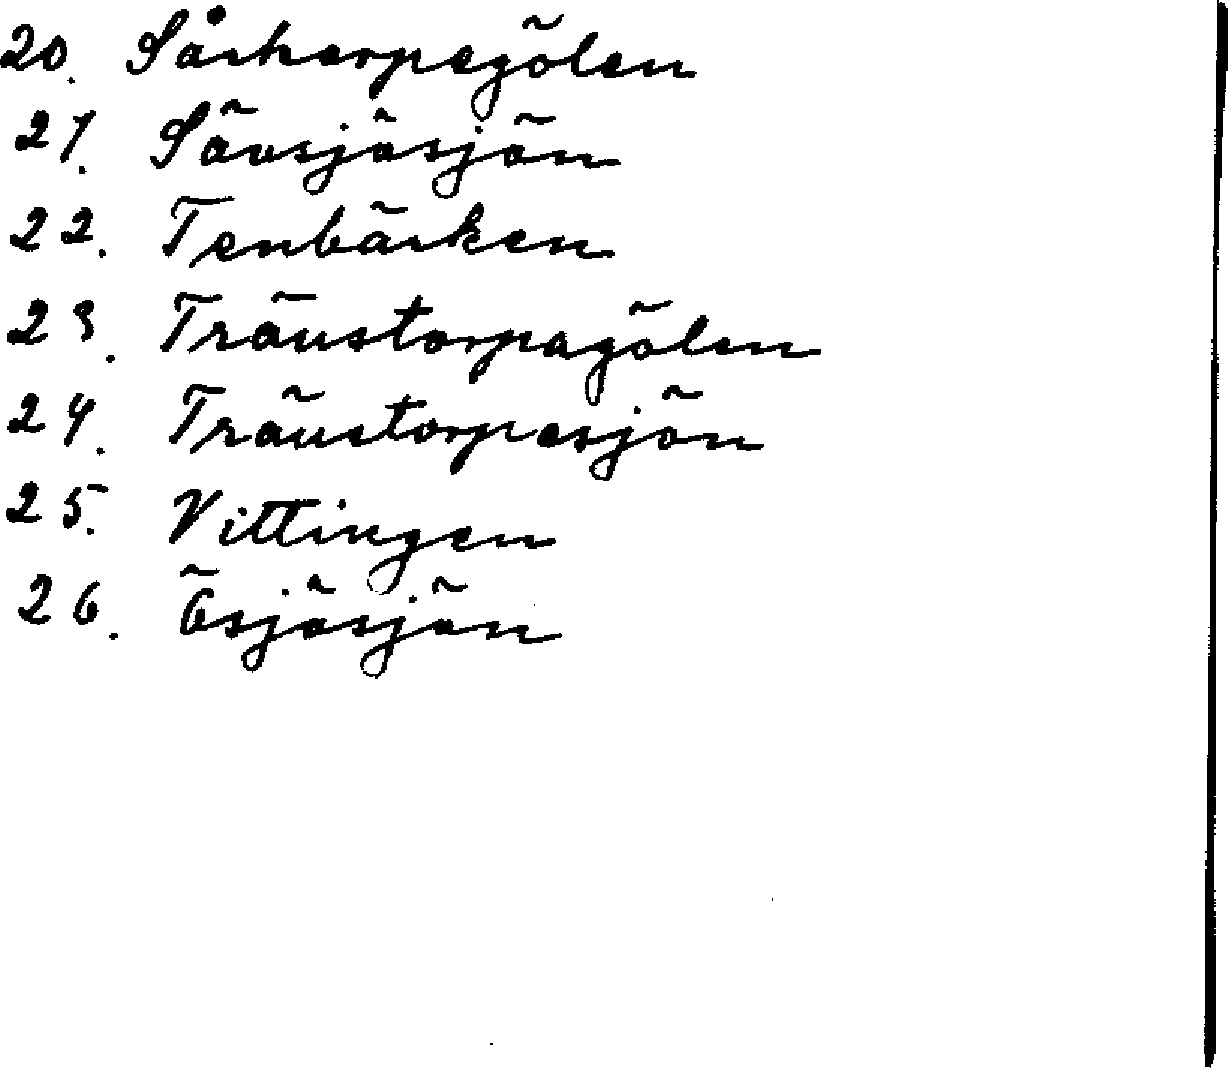 20. Sårharpagölen
21. Sävsjösjön
22. Tenbäcken
23. Träustorpagölen
24. Träustorpasjön
25. Vittingen
26. Ösjösjön